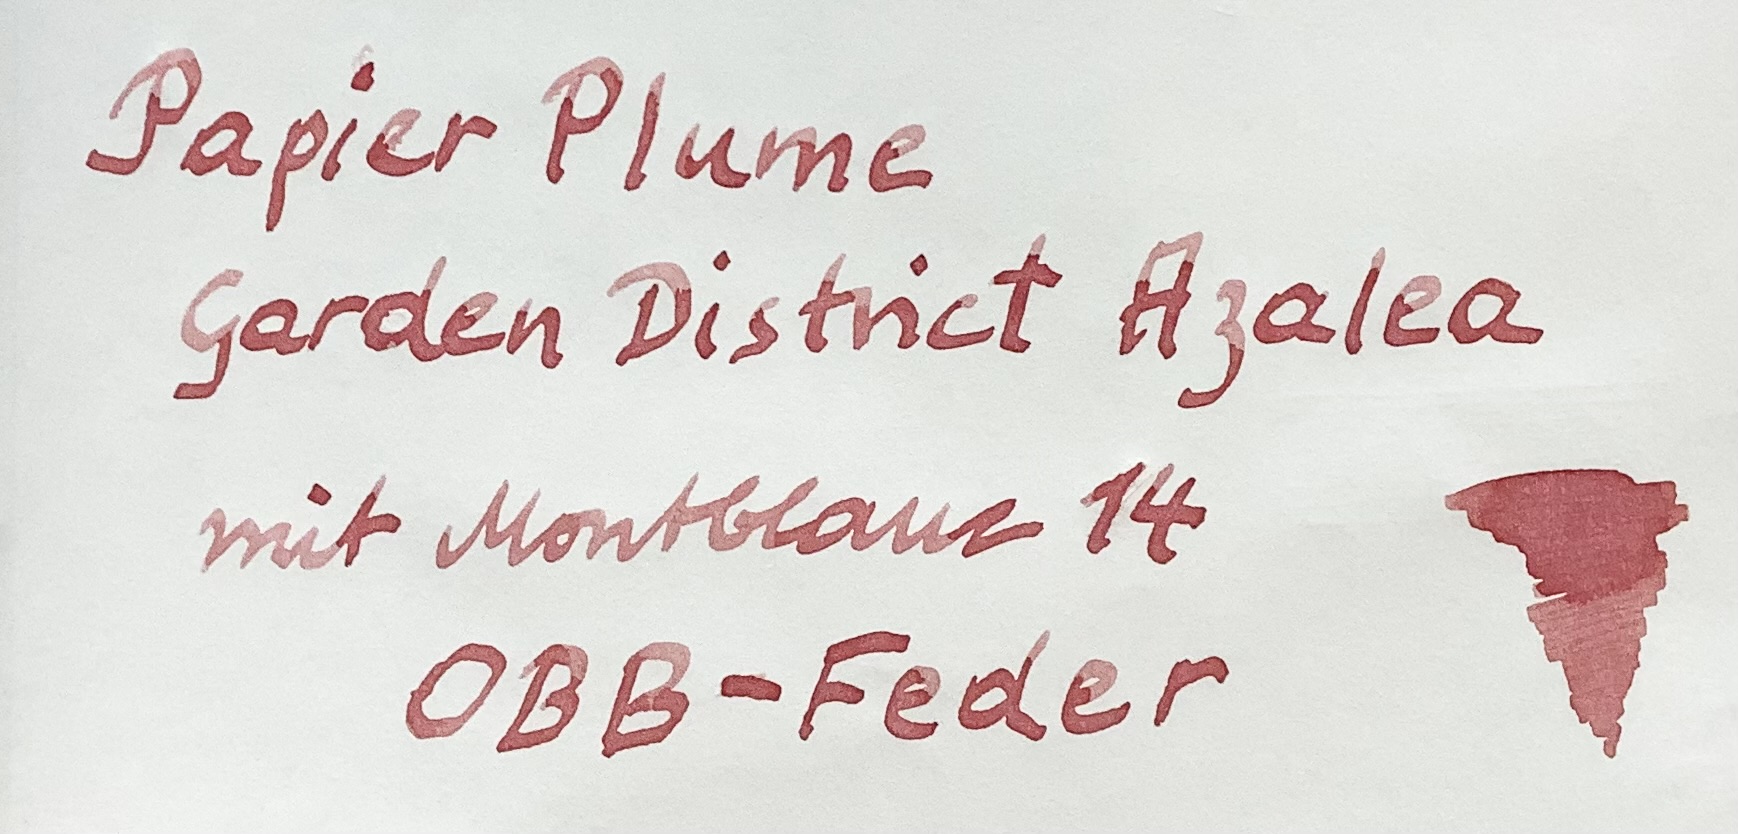 Papier Plume
Garden District Azalea
mit Montblanc 14
OBB-Feder